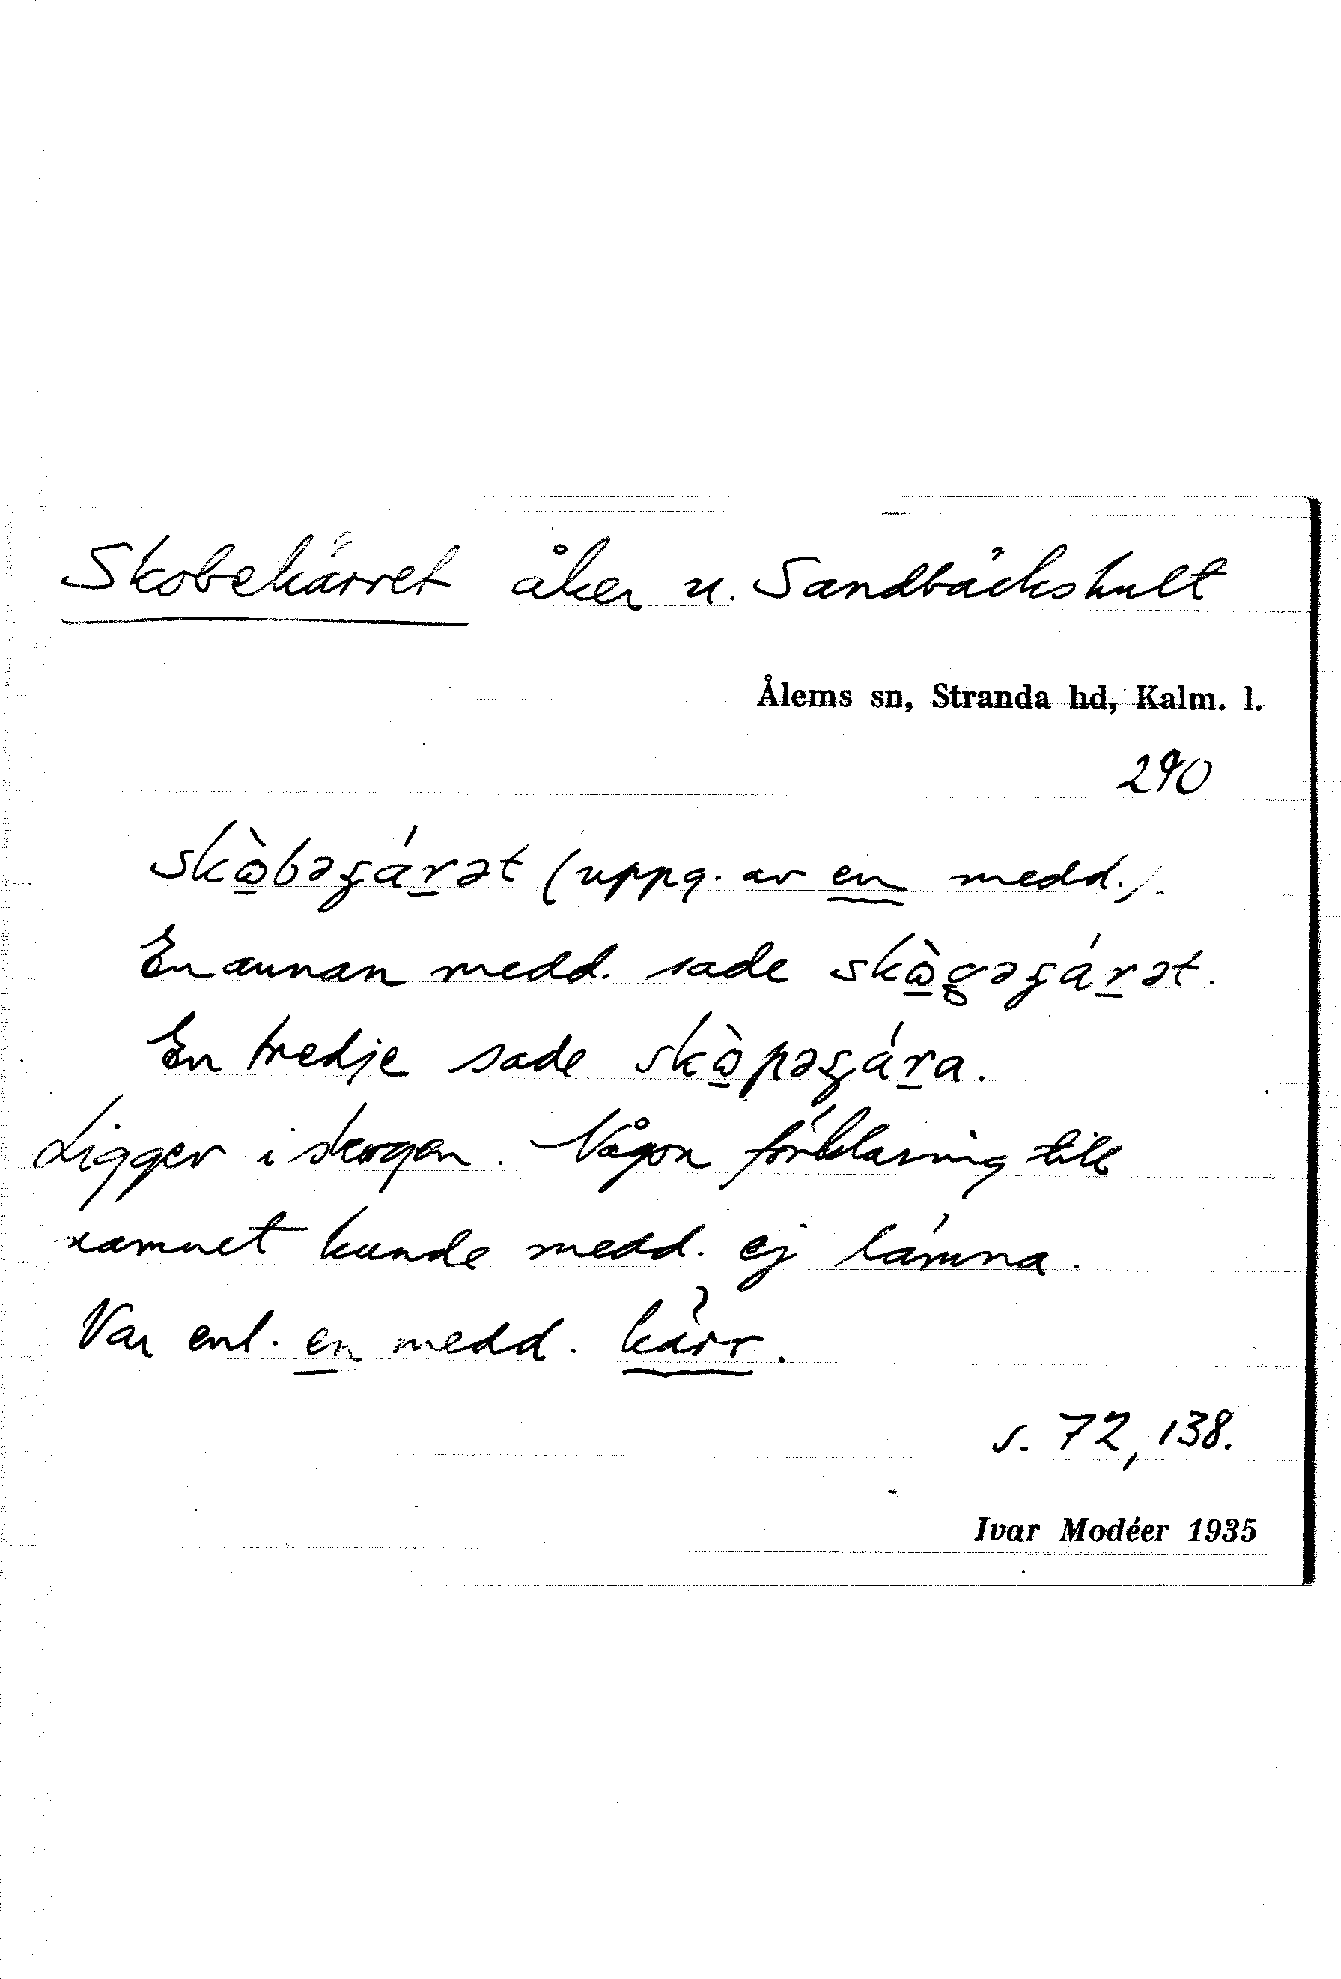 Skobekärret åker u. Sandbäckshult
Ålems sn, Stranda hd, Kalm. l.
290
skὼ̱bəʂárət (uppg. av en medd.).
En annan medd. sade skὼ̱gəʂárət.
En tredje sade skὼ̱pəʂára.
Ligger i skogen. Någon förklaring till
namnet kunde medd. ej lämna.
Var enl. en medd. kärr.
s. 72, 138.
Ivar Modéer 1935